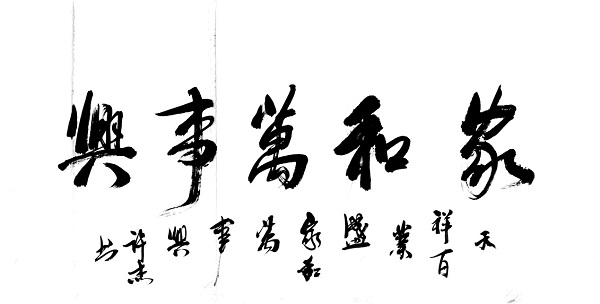 家和萬事興
天祥百業盛家和萬事興許书